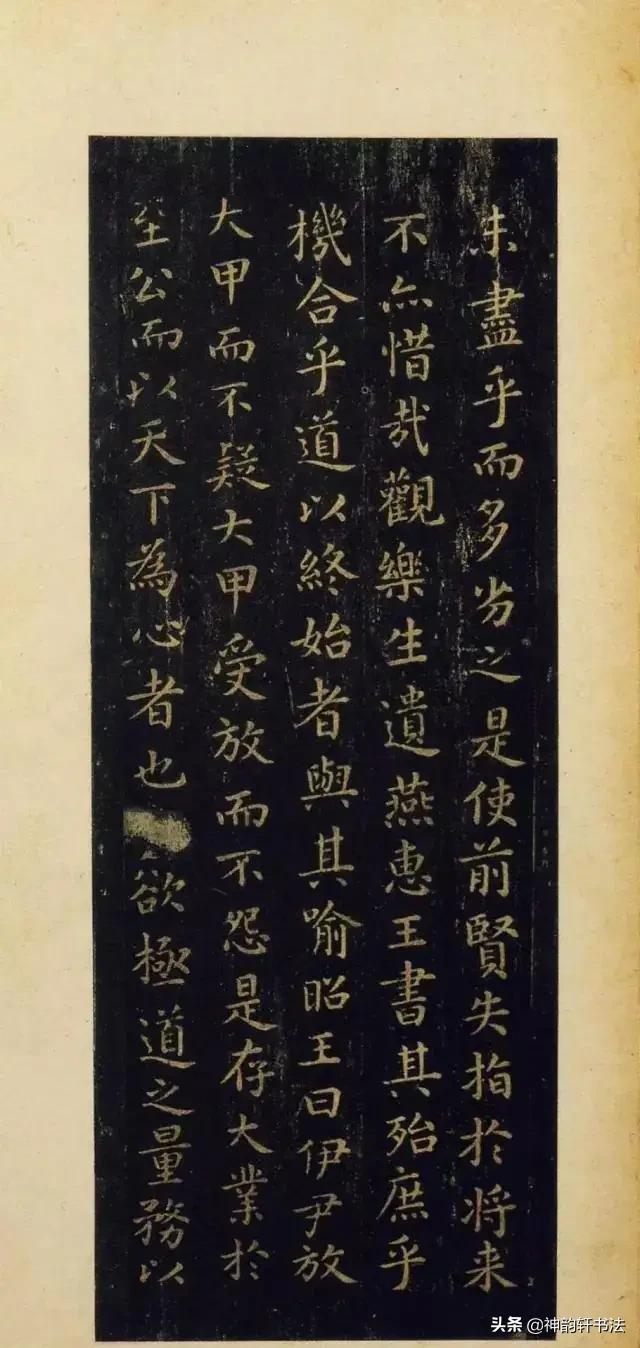 未盡乎而多劣之是使前賢失指於将来
不亦惜哉觀樂生遺燕惠王書其殆庶乎
機合乎道以終始者與其喻昭王曰伊尹放
大甲而不疑大甲受放而不怨是存大業於
至公而以天下為心者也欲極道之量務以
头条@神韵轩书法